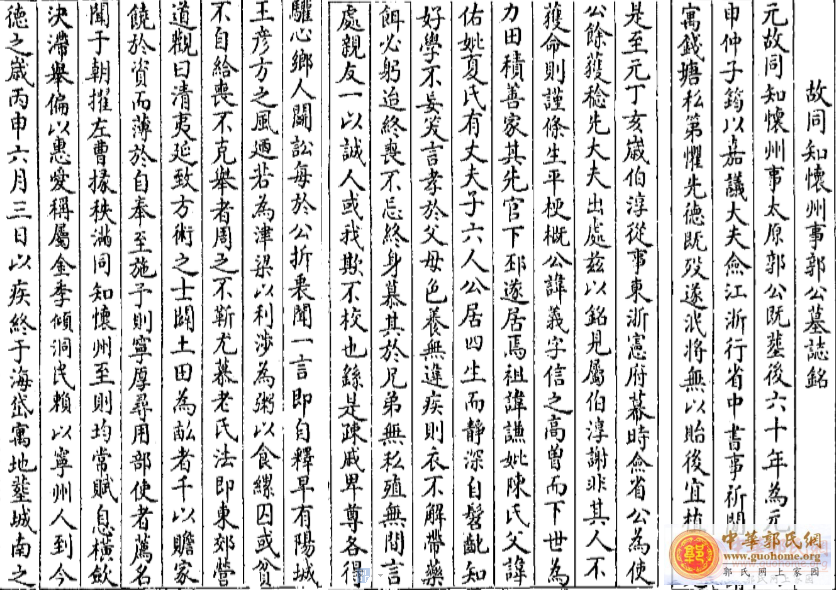 故同知懷州事郭公墓誌銘
元故同知懷州事太原郭公既塟後六十年為元
申仲子筠以嘉議大夫僉江浙行省中書事祈
寓錢塘私第懼先德既歿遂泯將無以貽後宜植
是至元丁亥歲伯淳從事東浙憲府幕時僉省公為使
公餘獲稔先大夫出處茲以銘見屬伯淳謝非其人不
獲命則謹條生平梗概公諱義字信之高曾而下世為
力田積善家其先官下邳遂居焉祖諱謙妣陳氏父諱
佑妣夏氏有丈夫子六人公居四生而靜深自髫齔知
好學不妄笑言孝於父母色養無違疾則衣不解帶藥
餌必躬迨終喪不忘終身慕其於兄弟無私殖無間言
處親友一以誠人或我欺不校也繇是疎戚卑尊各得
驩心鄉人鬬訟每於公折衷聞一言即自釋早有陽城
王彥方之風廼若為津梁以利涉為粥以食縲囚或貧
不自給喪不克舉者周之不靳尤慕老氏法即東郊營
道觀曰清夷延致方術之士闢土田為畝者千以贍家
饒於資而薄於自奉至施予則寧厚尋用部使者薦名
聞于朝擢左曹掾秩滿同知懷州至則均常賦息橫斂
決滯舉偏以惠愛稱屬金季傾洞民賴以寧州人到今
德之歲丙申六月三日以疾終于海岱寓地塟城南之
中華郭氏網
www.guohome.org
郭氏網上家園